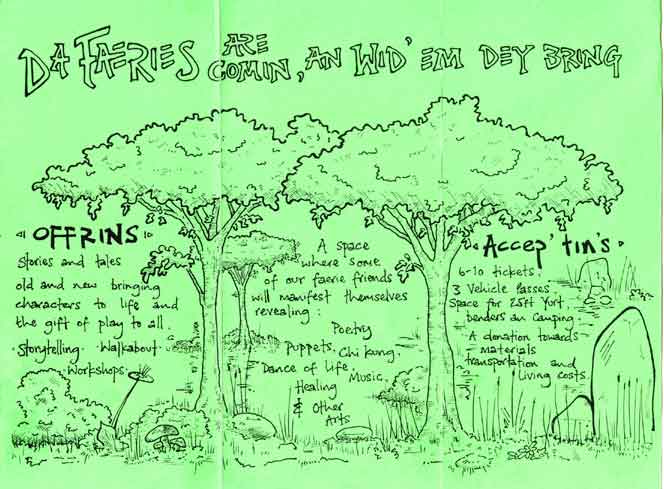 DA FAERIES ARE COMIN, AN WID' 'EM DEY BRING
OFFRINS
Stories and tales
old and new bringing
characters to life and
the gift of play to all.
Storytelling. Walkabout.
Workshops.
A space
where some
of our faerie friends
will manifest themselves
revealing:
Poetry
Puppets. Chi Kung.
Dance of Life. Music.
Healing
& Other
Arts
Accep'tin's
6-10 tickets.
3 Vehicle Passes
Space for 25ft Yurt.
benders an Camping
A donation towards
materials
transportation and
living costs.